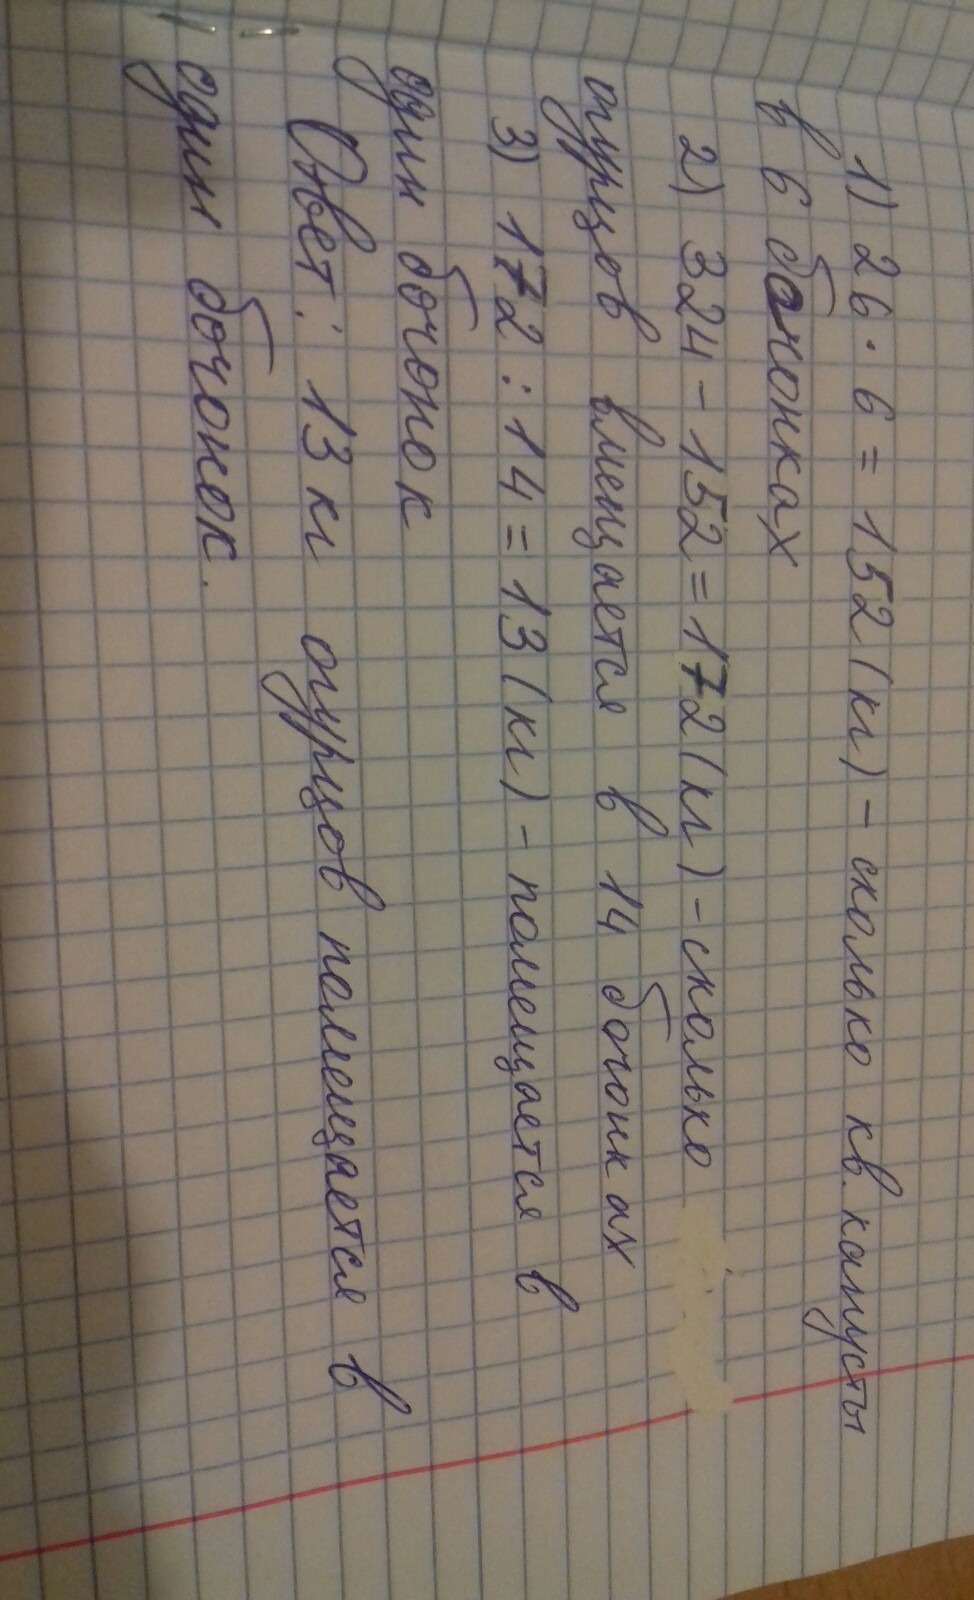 1) 26 · 6 = 152 (кг) - сколько кв. капусты
в 6 бочонках
2) 324 - 152 = 172 (кг) - сколько
огурцов вмещается в 14 бочонках
3) 172 : 14 = 13 (кг) - помещается в
один бочонок
Ответ: 13 кг огурцов помещается в
один бочонок.